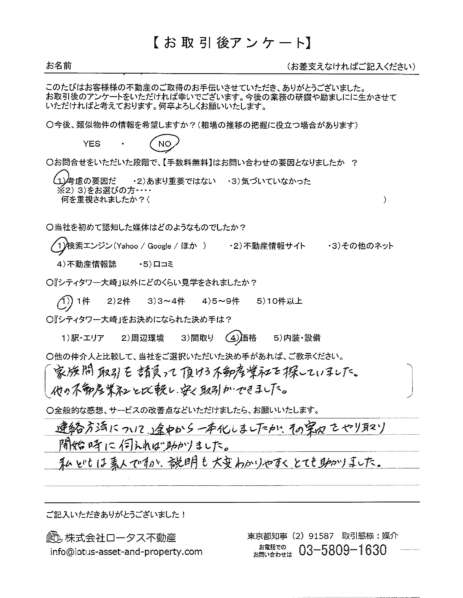 【お取引後アンケート】
お名前 (お差支えなければご記入ください)
このたびはお客様様の不動産のご取得のお手伝いさせていただき、ありがとうございました。
お取引後のアンケートをいただければ幸いでございます。今後の業務の研鑽や励ましにに生かさせて
いただければと考えております。何卒よろしくお願いいたします。
○今後、類似物件の情報を希望しますか？(相場の推移の把握に役立つ場合があります)
YES ・ NO
○お問合せをいただいた段階で、【手数料無料】はお問い合わせの要因となりましたか ？
1)考慮の要因だ ・2)あまり重要ではない ・3)気づいていなかった
※2) 3)をお選びの方・・・・
何を重視されましたか？( )
○当社を初めて認知した媒体はどのようなものでしたか？
1)検索エンジン(Yahoo / Google / ほか ) ・2)不動産情報サイト ・3)その他のネット
4)不動産情報誌 ・5)口コミ
○『シティタワー大崎』以外にどのくらい見学をされましたか？
1) 1件 2)2件 3)3～4件 4)5～9件 5)10件以上
○『シティタワー大崎』をお決めになられた決め手は？
1)駅・エリア 2)周辺環境 3)間取り 4)価格 5)内装・設備
○他の仲介人と比較して、当社をご選択いただいた決め手があれば、ご教示ください。
家族間取引を請負って頂ける不動産業社を探していました。
他の不動産業社と比較し、安く取引ができました。
○全般的な感想、サービスの改善点などいただけましたら、お願いいたします。
連絡方法について途中から一本化しましたが、その案内をやり取り
開始時に伺えれば助かりました。
私どもは素人ですが、説明も大変わかりやすくとても助かりました。
ご記入いただきありがとうございました！
株式会社ロータス不動産 東京都知事 (2) 91587 取引態様：媒介
info@lotus-asset-and-property.com お電話でのお問い合わせは 03-5809-1630